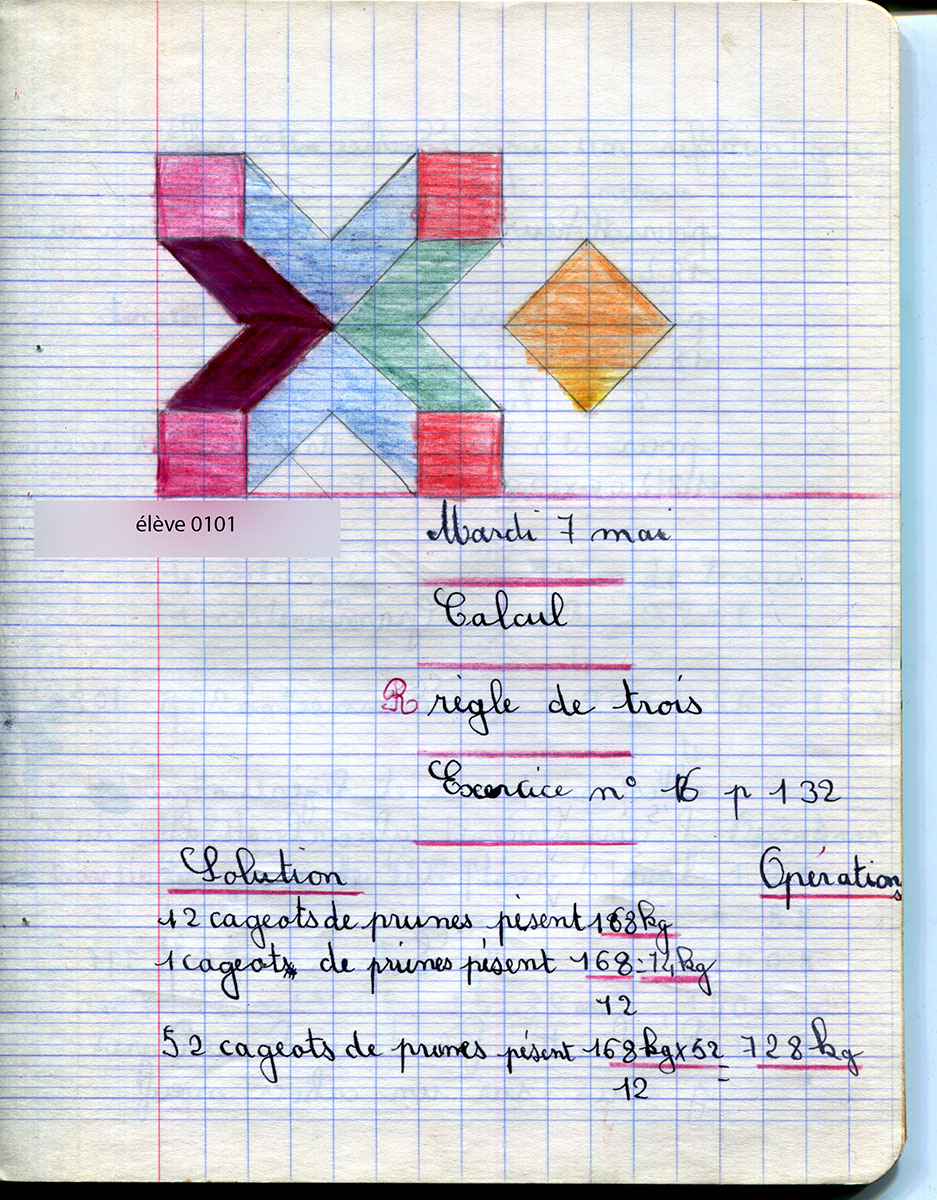 élève 0101
Mardi 7 mai
Calcul
R règle de trois
Exercice n° 16 p 132
Solution
Opérations
12 cageots de prunes pèsent 168kg
1 cageot de prunes pèsent 168 = 14kg
12
52 cageots de prunes pèsent 168kg x 52 = 728kg
12